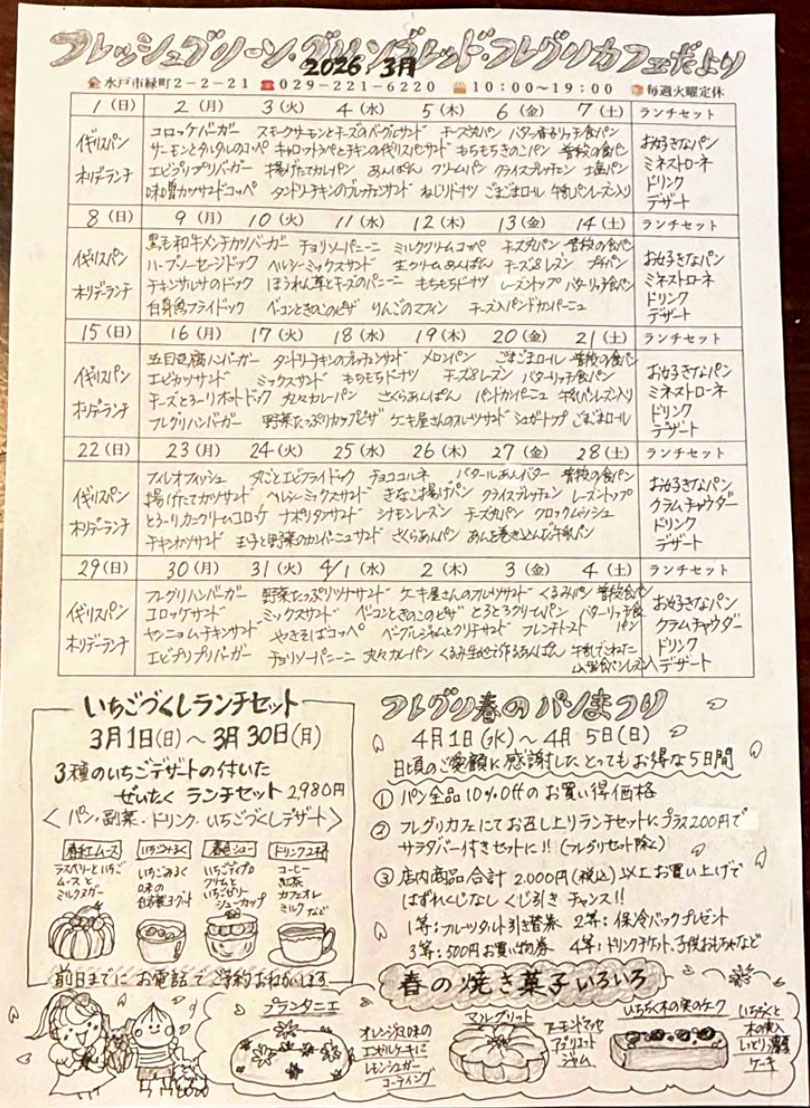 フレッシュグリーン・グリーンブレッド・フレグリカフェだより
2026 3月
水戸市緑町2-2-21 ☎029-221-6220 10:00〜19:00 毎週火曜定休
1(日) 2(月) 3(火) 4(水) 5(木) 6(金) 7(土) ランチセット
イギリスパン
ホリデーランチ
コロッケバーガー スモークサーモンとチーズのベーグルサンド チーズ丸パン バター香るリッチ食パン
サーモンとタルタルのコッペ キャロットラペとチキンの イギリスパンサンド もちもちきのこパン 普段の食パン
エビプリプリバーガー 揚げたてカレパン あんぱん クリームパン クライスブレッチェン 塩パン
味噌カツサンドコッペ タンドリーチキンのブレッチェンサンド ねじりドーナツ ごまごまロール 牛乳パンレーズン入り
お好きなパン
ミネストローネ
ドリンク
デザート
8(日) 9(月) 10(火) 11(水) 12(木) 13(金) 14(土) ランチセット
イギリスパン
ホリデーランチ
黒毛和牛メンチカツバーガー チョリソーパニーニ ミルククリームコッペ チーズ丸パン 普段の食パン
ハーブソーセージドック ヘルシーミックスサンド 生クリームあんぱん チーズ&レズン プチパン
チキンサルサのドック ほうれん草とチーズのパニーニ もちもちドーナツ レーズントップ バターリッチ食パン
白身魚フライドック ベーコンときのこのピザ りんごのマフィン チーズ入パンドカンパーニュ
お好きなパン
ミネストローネ
ドリンク
デザート
15(日) 16(月) 17(火) 18(水) 19(木) 20(金) 21(土) ランチセット
イギリスパン
ホリデーランチ
五目豆腐ハンバーガー タンドリーチキンのブレッチェンサンド メロンパン ごまごまロール 普段の食パン
エビカツサンド ミックスサンド もちもちドーナツ チーズ&レズン バターリッチ食パン
チーズとろ〜りホットドック 丸々カレーパン さくらあんぱん パンドカンパーニュ 牛乳パンレーズン入り
フレグリハンバーガー 野菜たっぷりカップピザ ケーキ屋さんのフルーツサンド シュガートップ ごまごまロール
お好きなパン
ミネストローネ
ドリンク
デザート
22(日) 23(月) 24(火) 25(水) 26(木) 27(金) 28(土) ランチセット
イギリスパン
ホリデーランチ
フィレオフィッシュ 丸ごとエビフライドック チョココルネ バタールあんバター 普段の食パン
揚げたてカツサンド ヘルシーミックスサンド きなこ揚げパン クライスブレッチェン レーズントップ
とろ〜りカニクリームコロッケ ナポリタンサンド シナモンレーズン チーズ丸パン クロックムッシュ
チキンカツサンド 玉子と野菜のカンパーニュサンド さくらあんパン あんを巻き込んだ牛乳パン
お好きなパン
クラムチャウダー
ドリンク
デザート
29(日) 30(月) 31(火) 4/1(水) 2(木) 3(金) 4(土) ランチセット
イギリスパン
ホリデーランチ
フレグリハンバーガー 野菜たっぷりツナサンド ケーキ屋さんのフルーツサンド くるみパン 普段食パン
コロッケサンド ミックスサンド ベーコンときのこのピザ とろとろクリームパン バターリッチ食パン
ヤンニョムチキンサンド やきそばコッペ ベーグルジャムとクリームチーズサンド フレンチトースト
エビプリプリバーガー チョリソーパニーニ 丸々カレーパン くるみ生地で作るあんぱん 牛乳でこねた山型食パンレーズン入
お好きなパン
クラムチャウダー
ドリンク
デザート
いちごづくしランチセット
3月1日(日)〜3月30日(月)
3種のいちごデザートの付いた
ぜいたく ランチセット 2,980円
<パン・副菜・ドリンク・いちごづくしデザート>
春紅ムース
ラズベリーといちご
ムースと
ミルクヌガー
いちごみるく
いちごみるく
味の
自家製ヨーグルト
春色シュー
いちごディプロ
クリームと
いちごゼリー
シューカップ
ドリンク2杯
コーヒー
紅茶
カフェオレ
ミルクなど
前日までにお電話でご予約おねがいします
フレグリ春のパンまつり
4月1日(水)〜4月5日(日)
日頃のご愛顧に感謝したとってもお得な5日間
① パン全品10%Offのお買い得価格
② フレグリカフェにてお召し上りランチセットにプラス200円で
サラダバー付きセットに!! (フレグリセット除く)
③ 店内商品合計2,000円(税込)以上お買い上げで
はずれくじなし くじ引き チャンス!!
1等:フルーツタルト引き替券 2等:保冷バックプレゼント
3等:500円お買い物券 4等:ドリンクチケット、子供おもちゃなど
春の焼き菓子いろいろ
プランタニエ
オレンジ風味の
エコガルケーキに
レモンシュガー
コーティング
マルグリット
アーモンドマッセ
アプリコット
ジャム
いちじく木の実のケーク
いちじくと
木の実入
しっとり濃厚
ケーキ